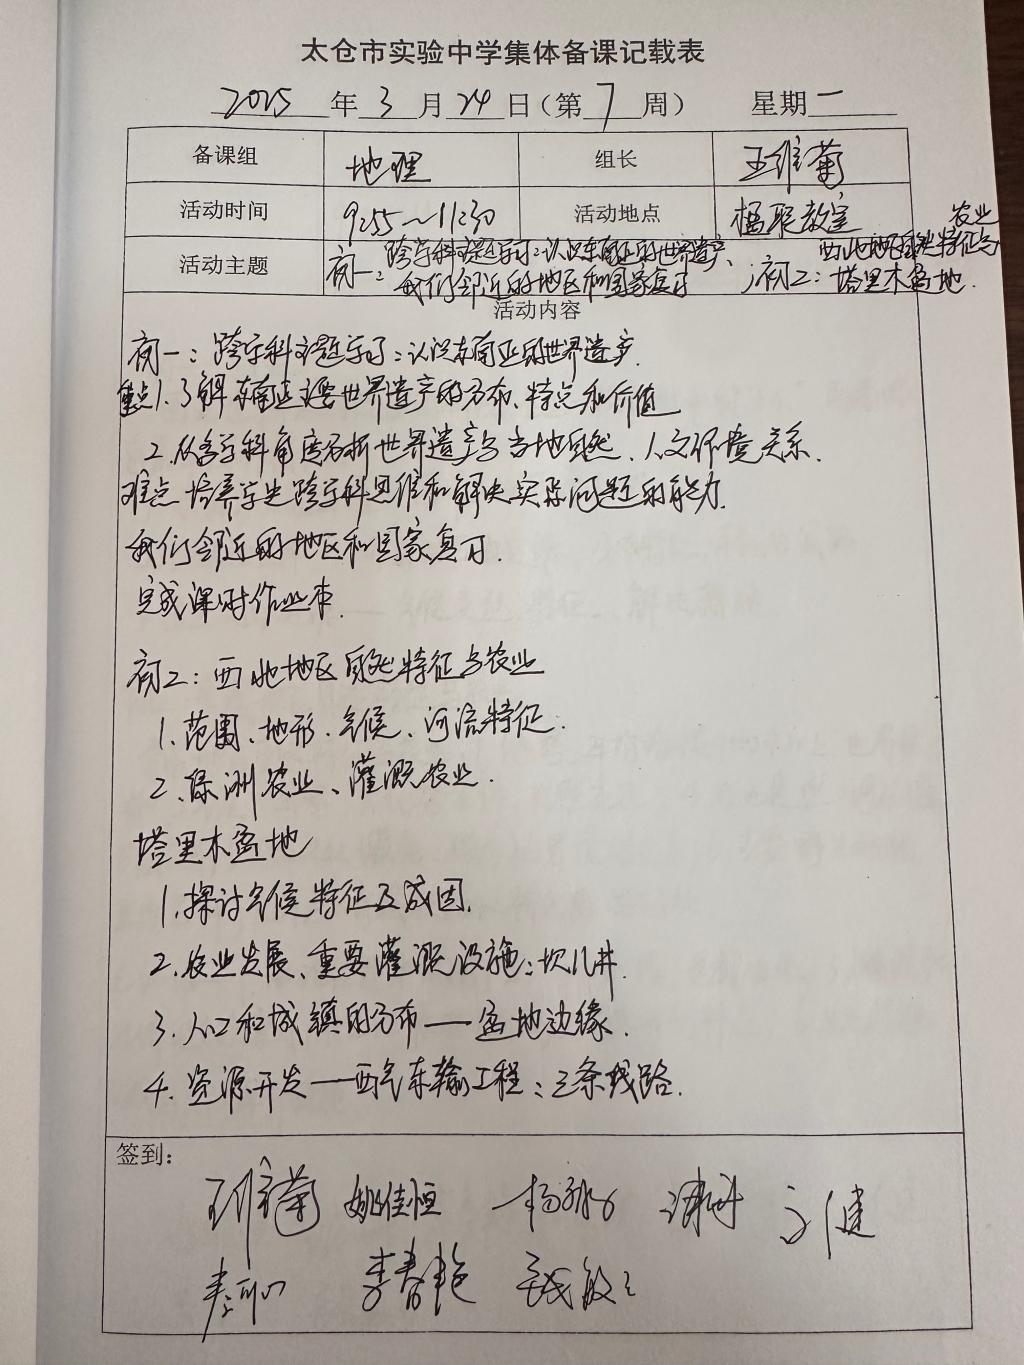 太仓市实验中学集体备课记载表
2025年3月24日（第7周） 星期一
备课组 地理 组长 王维菊
活动时间 9:55~11:30 活动地点 教室
活动主题 初一：跨学科主题学习：认识东南亚的世界遗产、
我们邻近的地区和国家复习
；初二：西北地区自然特征与农业
塔里木盆地.
活动内容
初一：跨学科主题学习：认识东南亚的世界遗产.
重点1.了解东南亚主要世界遗产的分布、特点和价值
2.从多学科角度分析世界遗产与当地自然、人文环境关系.
难点 培养学生跨学科思维和解决实际问题的能力.
我们邻近的地区和国家复习.
完成课时作业本.
初二：西北地区自然特征与农业
1.范围、地形、气候、河流特征.
2、绿洲农业、灌溉农业.
塔里木盆地
1.探讨气候特征及成因.
2.农业发展、重要灌溉设施：坎儿井.
3.人口和城镇的分布——盆地边缘.
4.资源开发——西气东输工程：三条线路.
签到：
王维菊 姚佳恒
李春艳 钱敏